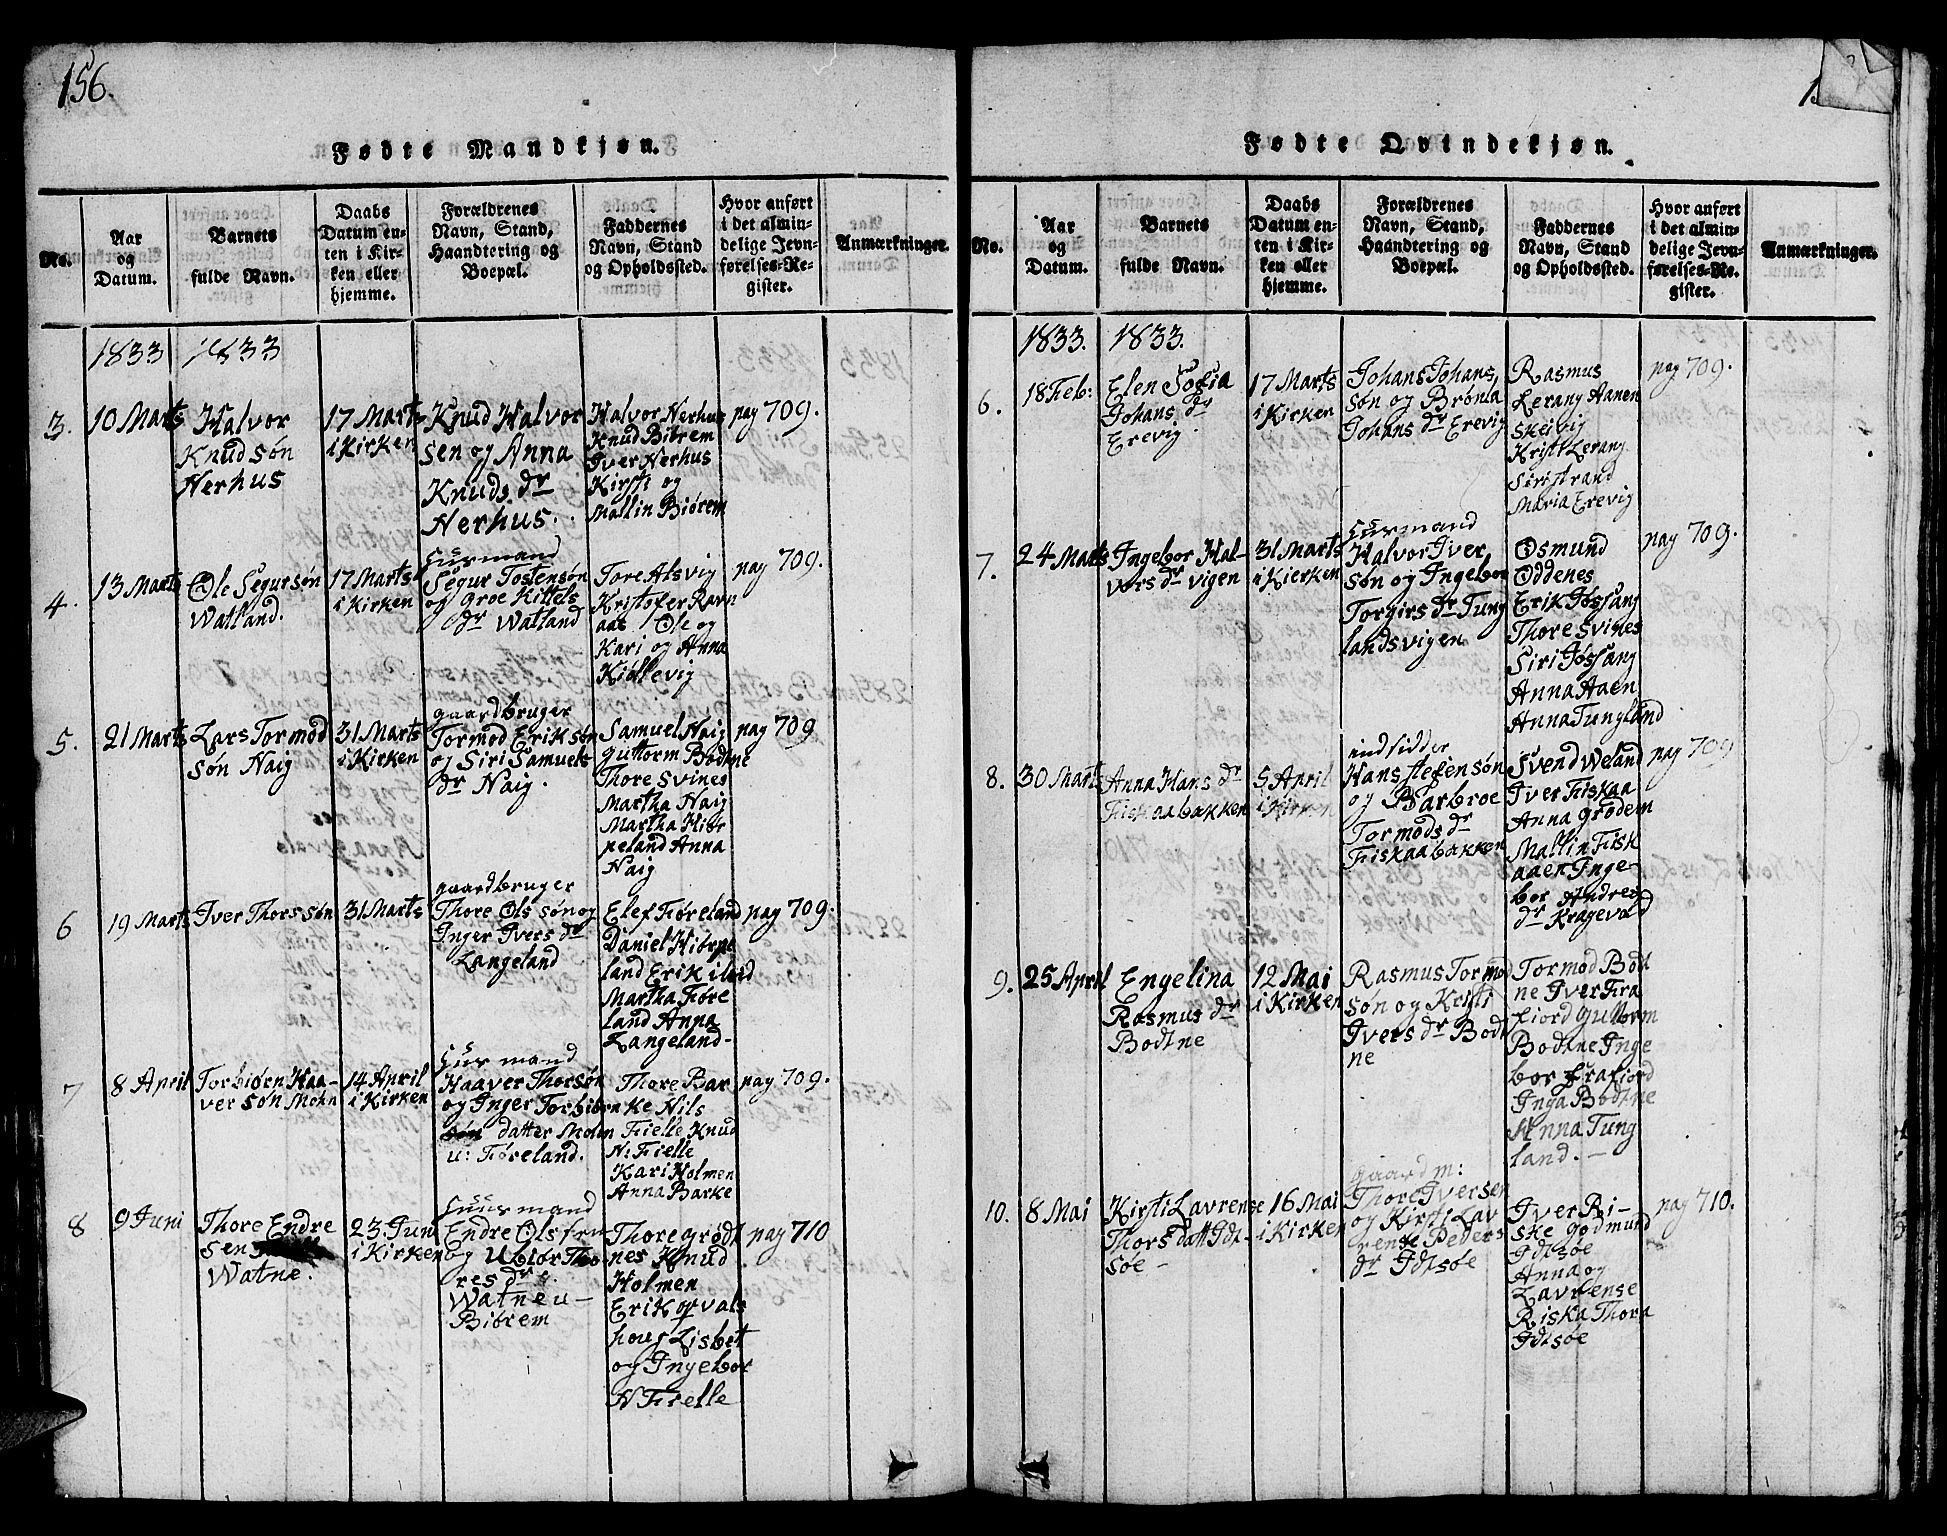 156.
Fødte Mandkjøn.
No.
Aar
og
Datum.
Barnets
fulde Navn.
Daabs
Datum en-
ten i Kir-
ken eller
hjemme.
Forældrenes
Navn, Stand,
Haandtering og
Boepæl.
Faddernes
Navn, Stand
og Opholdssted.
Hvor anført
i det almin-
delige Jevn-
førelses-Re-
gister.
Anmærkninger.
1833
1833
3.
10 Marts
Halvor
Knudsøn
Nerhus
17 Marts
i Kirken
Knud Halvor
sen og Anna
Knuds dr
Nerhus.
Halvor Nerhus
Knud Biørem
Iver Nerhus
Kirsti og
Mallin Biørem
pag 709.
4.
13 Marts
Ole Segursøn
Watland.
17 Marts
i Kirken
Huusmand
Segur Tostensøn
og Groe Kittels
dr Watland
Tore Alsvig
Kristofer Ravn
aas Ole og
Kari og Anna
Kiøllevig
pag 709.
5.
21 Marts
Lars Tormod
søn Naig
31 Marts
i Kirken
gaardbruger
Tormod Eriksøn
og Siri Samuels
dr Naig.
Samuel Naig
guttorm Bodtne
Thore Svines
Martha Naig
Martha Hiør
peland Anna
Naig
pag 709
6
19 Marts
Iver Thorssøn
31 Marts
gaardbruger
Thore Olssøn og
Inger Ivers dr
Langeland
Elef Føreland
Daniel Hiørpe
land Erik
Martha Føre
land Anna
Langeland-
pag 709.
7
8 April
Torbiørn Haa-
versøn Mohn
14 April
i Kirken
Huusmand
Haaver Thorsøn
og Inger Torbiørn
datter Mohn
u: Føreland.
Thore Bar
ke Nils
Fielle Knud
N: Fielle
Kari Holmen
Anna Barke
pag 709.
8
9 Juni
Thore Endre
sen
Watne.
23 Juni
i Kirken
Huusmand
Endre Olssen
og Tho
res dr
Watne u-
Biørem
Thore grødt
nes Knud
Holmen
Erik qvals
houg Lisbet
og Ingebor
N Fielle
pag 710
Fødte Qvindekjøn.
No.
Aar
og
Datum.
Barnets
fulde Navn.
Daabs
Datum en-
ten i Kir-
ken eller
hjemme.
Forældrenes
Navn, Stand,
Haandtering og
Boepæl.
Faddernes
Navn, Stand
og Opholdssted.
Hvor anført
i det almin-
delige Jevn-
førelses-Re-
gister.
Anmærkninger.
1833.
1833.
6.
18 Feb:
Elen Sofia
Johans dr
Erevig
17 Marts
i Kirken
Johans Johans,
søn og Brønla
Johans dr Erevig
Rasmus
Lerang Aanen
Skeivig
Kristi Lerang
Siri strand
Maria Erevig
pag 709.
7.
24 Marts
Ingebor Hal-
vors dr vigen
31 Marts
i Kierken
Huusmand
Halvor Iver
søn og Ingebor
Torgirs dr Tung
landsvigen
Osmund
Oddenes
Erik Jøssang
Thore Svines
Siri Jøssang
Anna Aaen
Anna Tungland
pag 709.
8.
30 Marts
Anna Hans dr
Fiskaabakken
5 April
i Kirken
indsidder
Hans stefensøn
og Barbroe
Tormods dr
Fiskaabakken
Svend Weland
Iver Fiskaa
Anna grødem
Mallin Fisk
aaen Inge-
bor Andreas
dr Kragevad
pag 709
9.
25 April
Engelina
Rasmus dr
Bodtne
12 Mai
i Kirken
Rasmus Tormod
søn og Kristi
Ivers dr Bodt
ne
Tormod Bodt
ne Iver Fra
fiord Guttorm
Bodtne Inge
bor frafjord
Inga Bodtne
Anna Tung
land.-
10.
8 Mai
Kirsti Lavrense
Thors datt Idt-
søe-
16 Mai
i Kirken
gaardm:
Thore Iversen
og Kirsti Lav
rense Peders
dr Idtsøe
Iver Ri-
ske godmund
Idtsøe
Anna og
Lavrense
Riska Thora
Idtsøe
pag 710.